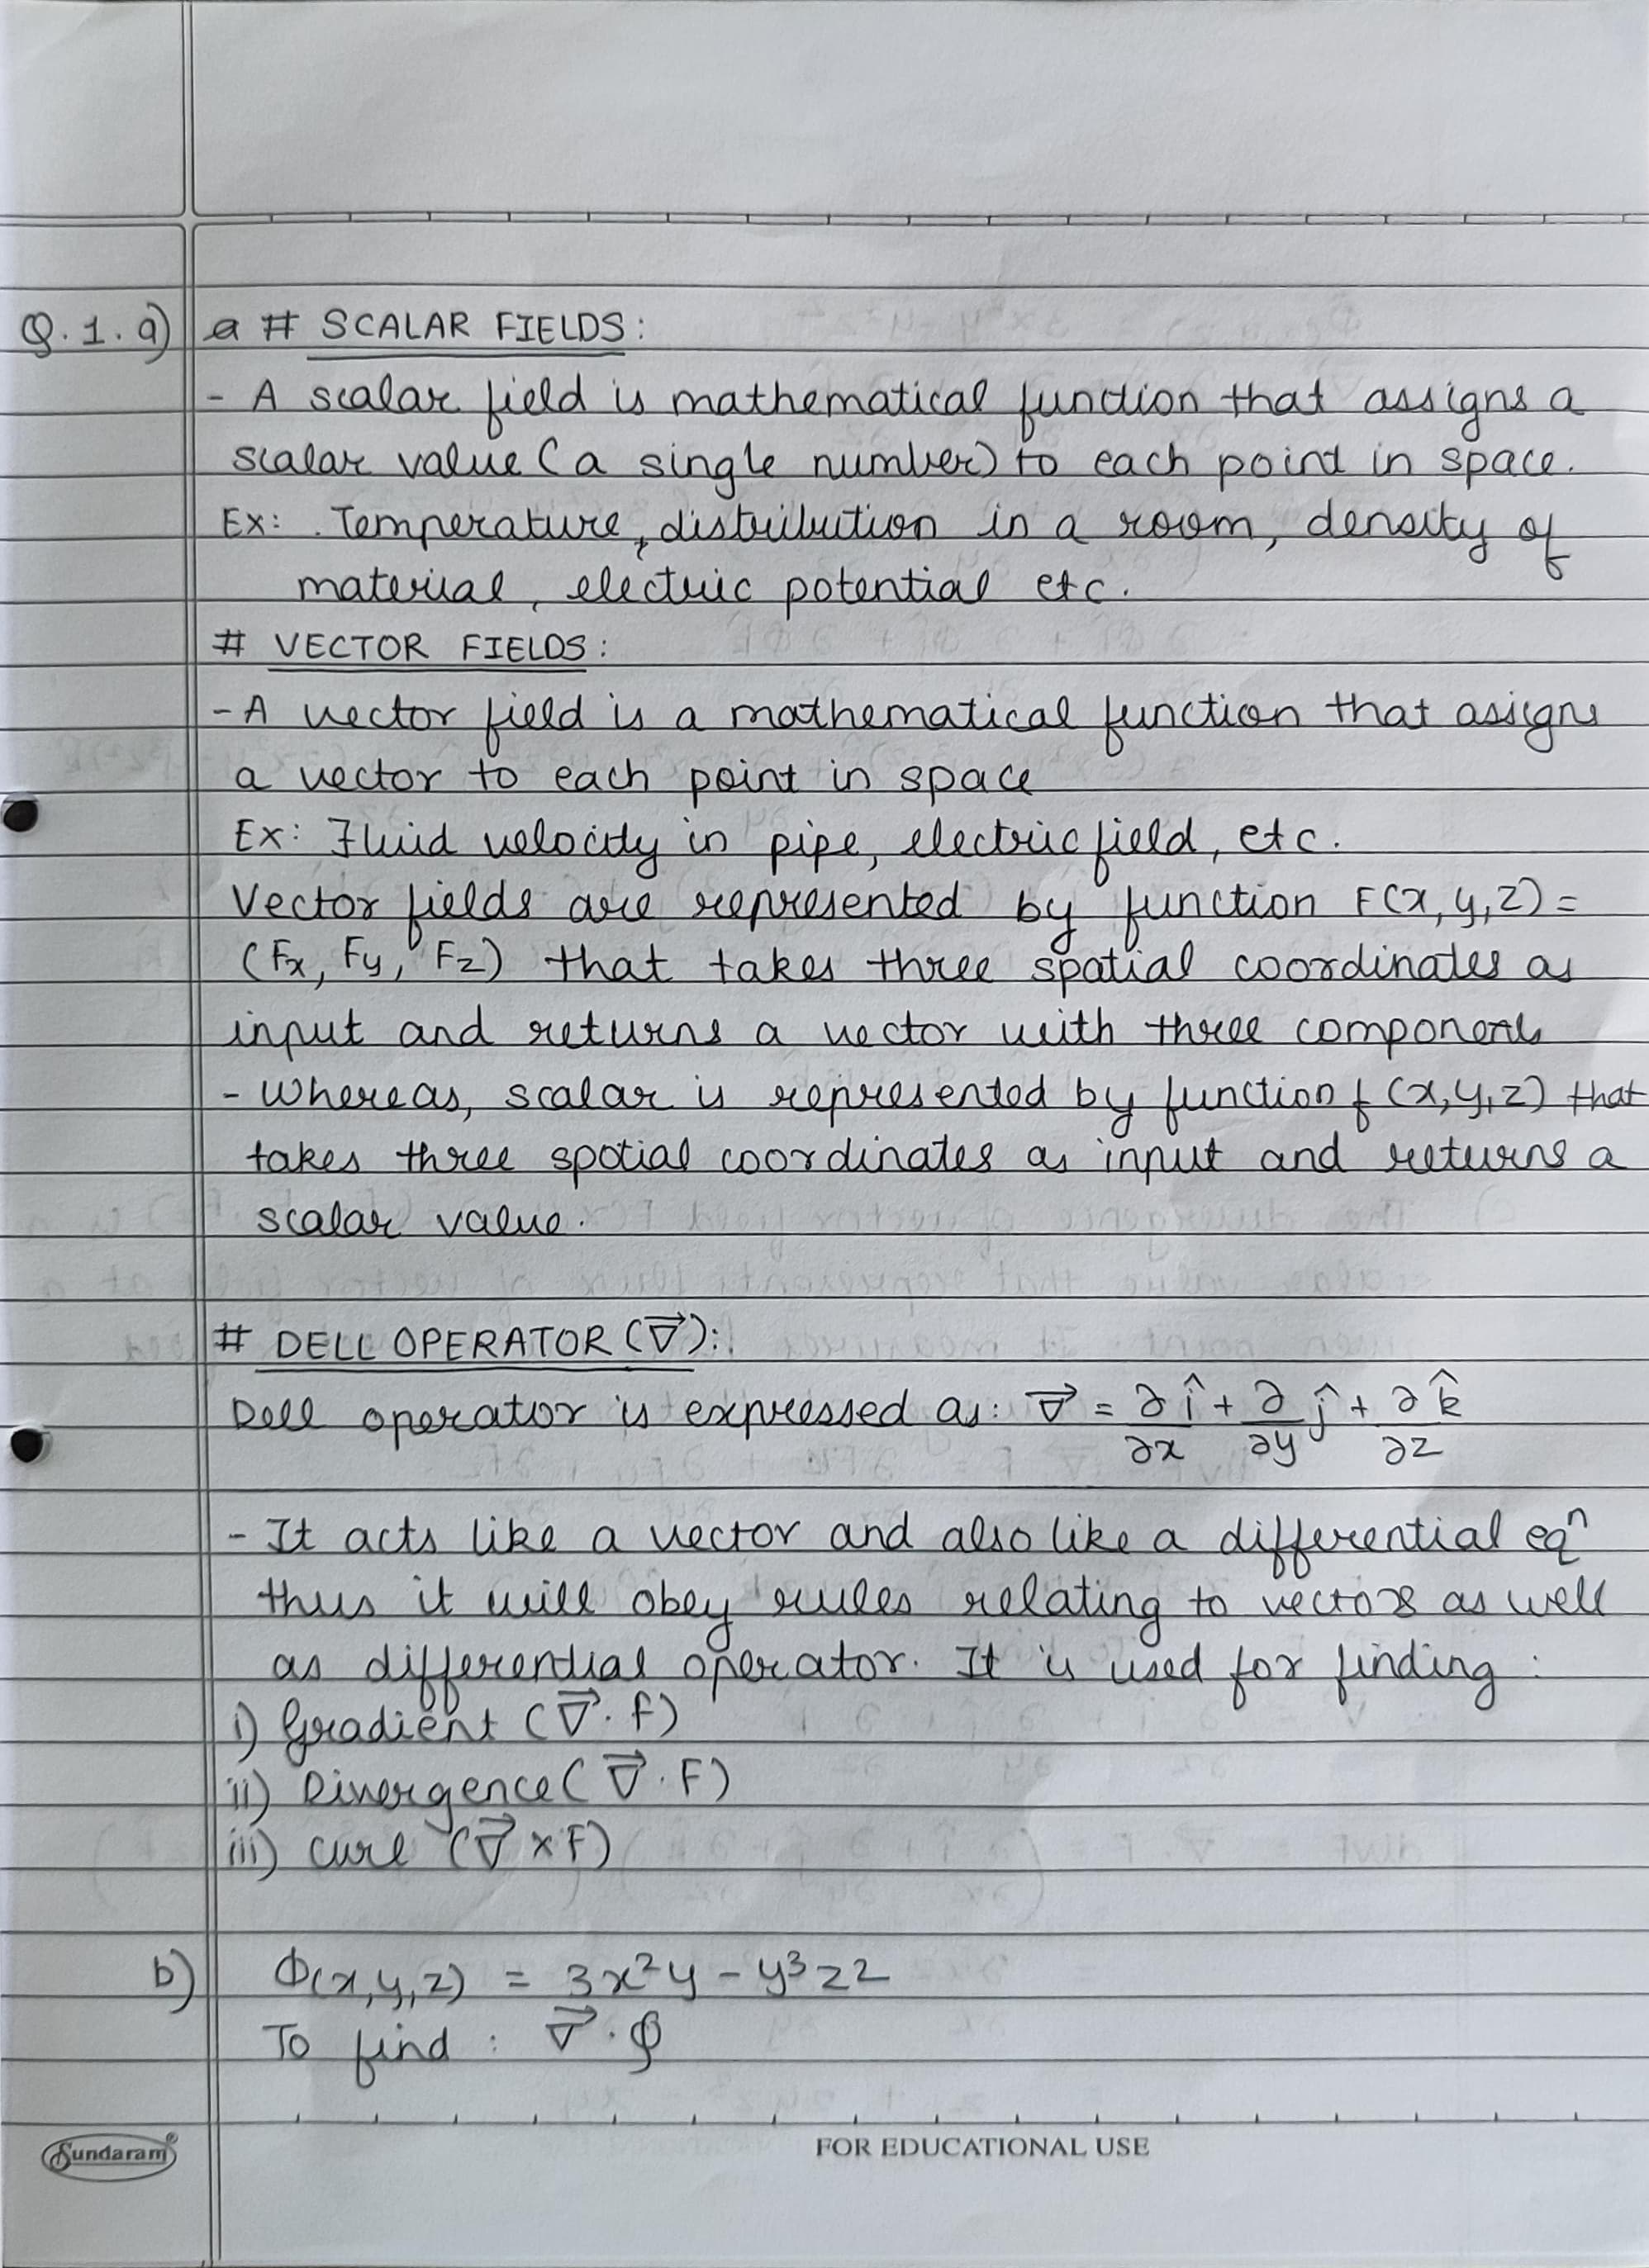 Q.1.a) # SCALAR FIELDS:
- A scalar field is mathematical function that assigns a
scalar value (a single number) to each point in space.
Ex: Temperature, distribution in a room, density of
material, electric potential etc.
# VECTOR FIELDS:
- A vector field is a mathematical function that assigns
a vector to each point in space
Ex: Fluid velocity in pipe, electric field, etc.
Vector fields are represented by function F(x,y,z) =
(Fx, Fy, Fz) that takes three spatial coordinates as
input and returns a vector with three components
- Whereas, scalar is represented by function f (x,y,z) that
takes three spatial coordinates as input and returns a
scalar value.
# DELL OPERATOR (∇⃗):
Dell operator is expressed as: ∇⃗ = ∂/∂x î + ∂/∂y ĵ + ∂/∂z k̂
- It acts like a vector and also like a differential eqⁿ
thus it will obey rules relating to vectors as well
as differential operator. It is used for finding :
i) Gradient (∇⃗ . f)
ii) Divergence (∇⃗ . F)
iii) Curl (∇⃗ × F)
b) Φ(x,y,z) = 3x²y - y³z²
To find : ∇⃗ . Φ
Sundaram®
FOR EDUCATIONAL USE